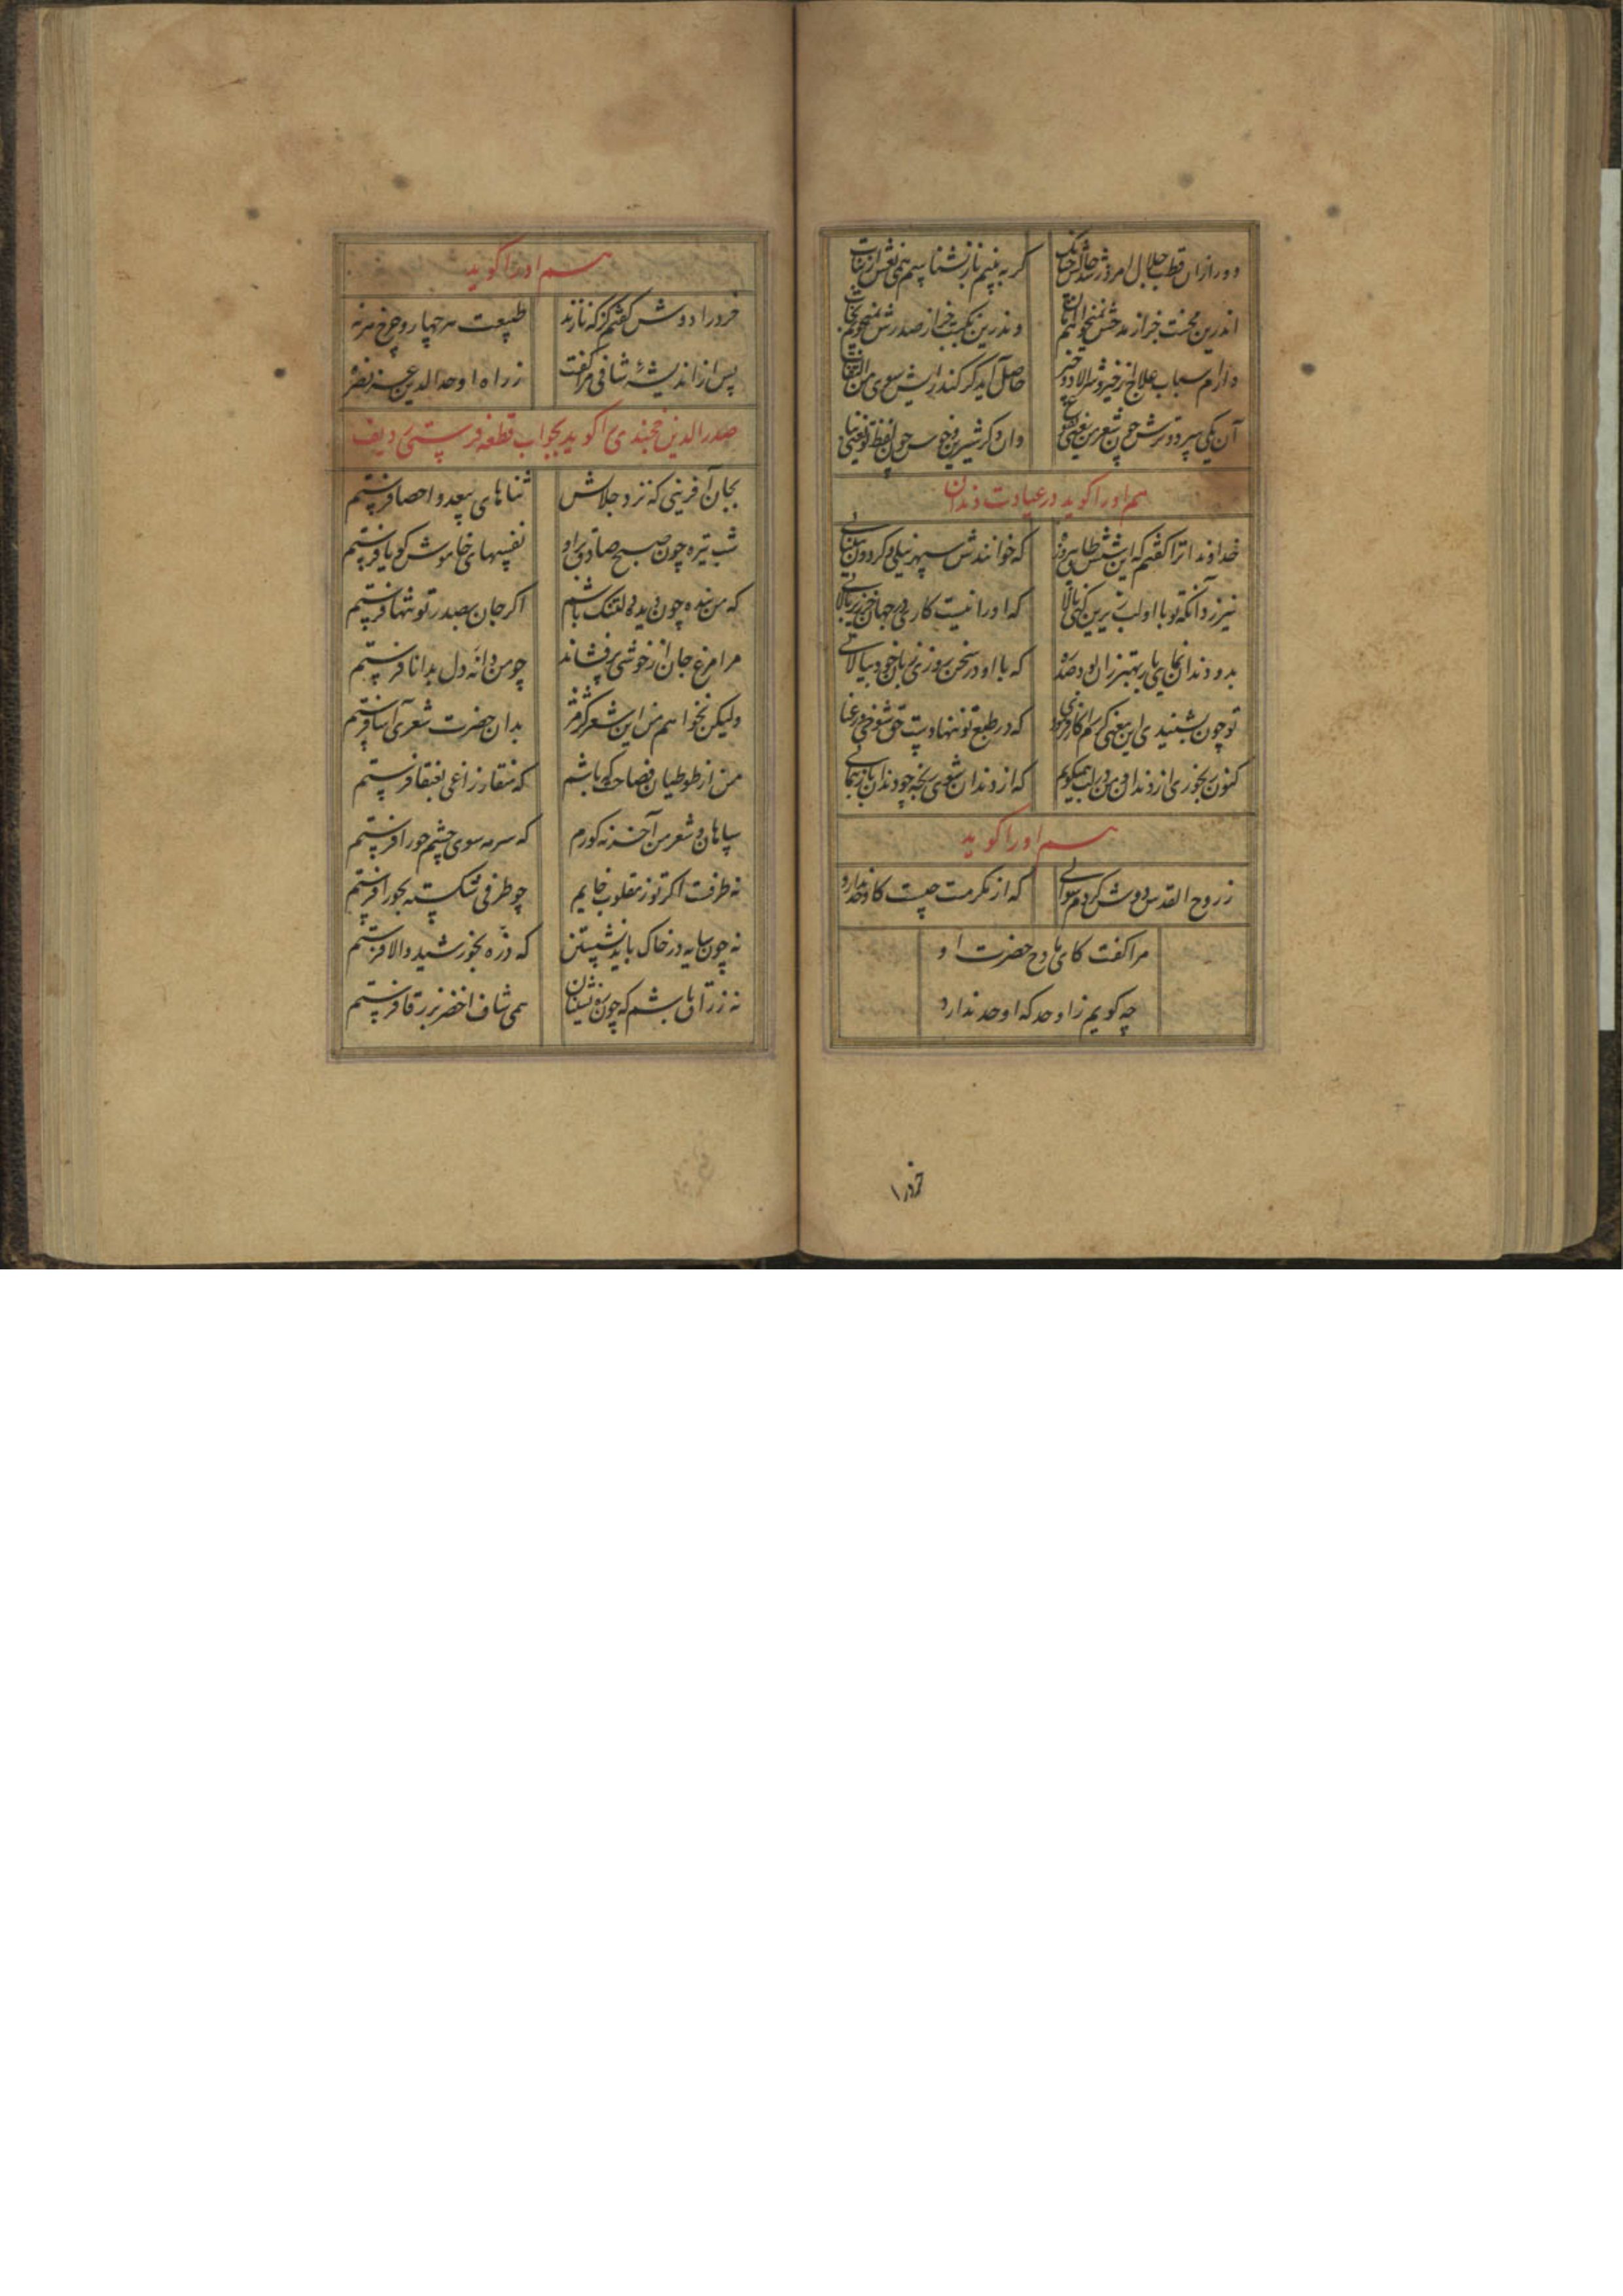 دور ازان قطب جلال امروز شد حالش چنانک
گر به بینم باز نشناسیم همی نعش از بنات
اندرین محنت خبر از مدحتش نمیخوانم
وندرین نکبت جز از صدرش نمیجویم نجات
دارم اسباب علاج از خیر و شر الا دو چیز
حاصل آید گر کند رایش سوی من التفات
آن یکی سرد و ترش چون شعر من یعنی
وان دگر شیرین و خوش چون لفظ تو یعنی نبات
هم او را گوید در عیادت دندان
خداوندا ترا گفتم که این شش طاق پیروزه
که خوانندش سپهر نیلی و گردون مینایی
نیرزد آنکه تو با او لب زیرین کنی بالا
که او را نیست کاری در جهان جز
بدو دندان نمایی بار بهتر زان بود صد ره
که با او در سخن روزی زبان خود بیالایی
تو چون بشنیدی این معنی کرم را کار فرمودی
که در طبع تو ننهادست حق شوخی و رعنایی
کنون رنجوری از دندان و من در لب همیگویم
که از دندان شوی رنجه چو دندان باز ننمایی
هم او را گوید
ز روح القدس دوش کردم سوالی
که از مکرمت چیست کاوحد ندارد
مرا گفت کای مادح حضرت او
چه گویم ز اوحد که اوحد ندارد
خرد را
هم او را گوید
خرد را دوش گفتم کز که نازند
طبیعت هر چهار و چرخ هر نه
پس از اندیشهٔ شافی مرا گفت
ز راه اوحد الدین عز نصره
صدر الدین خجندی را گوید بجواب قطعه فرستمی ردیف
بجان آفرینی که نزد جلالش
ثناهای بیعد و احصا فرستم
شب تیره چون صبح صادق برِ او
نفسهای خاموش گویا فرستم
که من بنده چون دیده دلتنگ باشم
اگر جان بصدر تو تنها فرستم
مرا مرغ جان از خوشی پر فشاند
چو من دانه دل بدانا فرستم
ولیکن نخواهم من این شعر کژ مژ
بدان حضرت شعر آرا فرستم
من از طوطیان فصاحت که باشم
که منقار زاغی بعنقا فرستم
سپاهان و شعر من آخر نه کورم
که سرمه سوی چشم حورا فرستم
نه ظرفست اگر توز مقلوب خایم
چو طرفی شکسته بجورا فرستم
نه چون سایه در خاک باید نشستن
که ذره بخورشید والا فرستم
نه زراق باشم که چون ره نشینان
همی شاف اخضر بزرقا فرستم